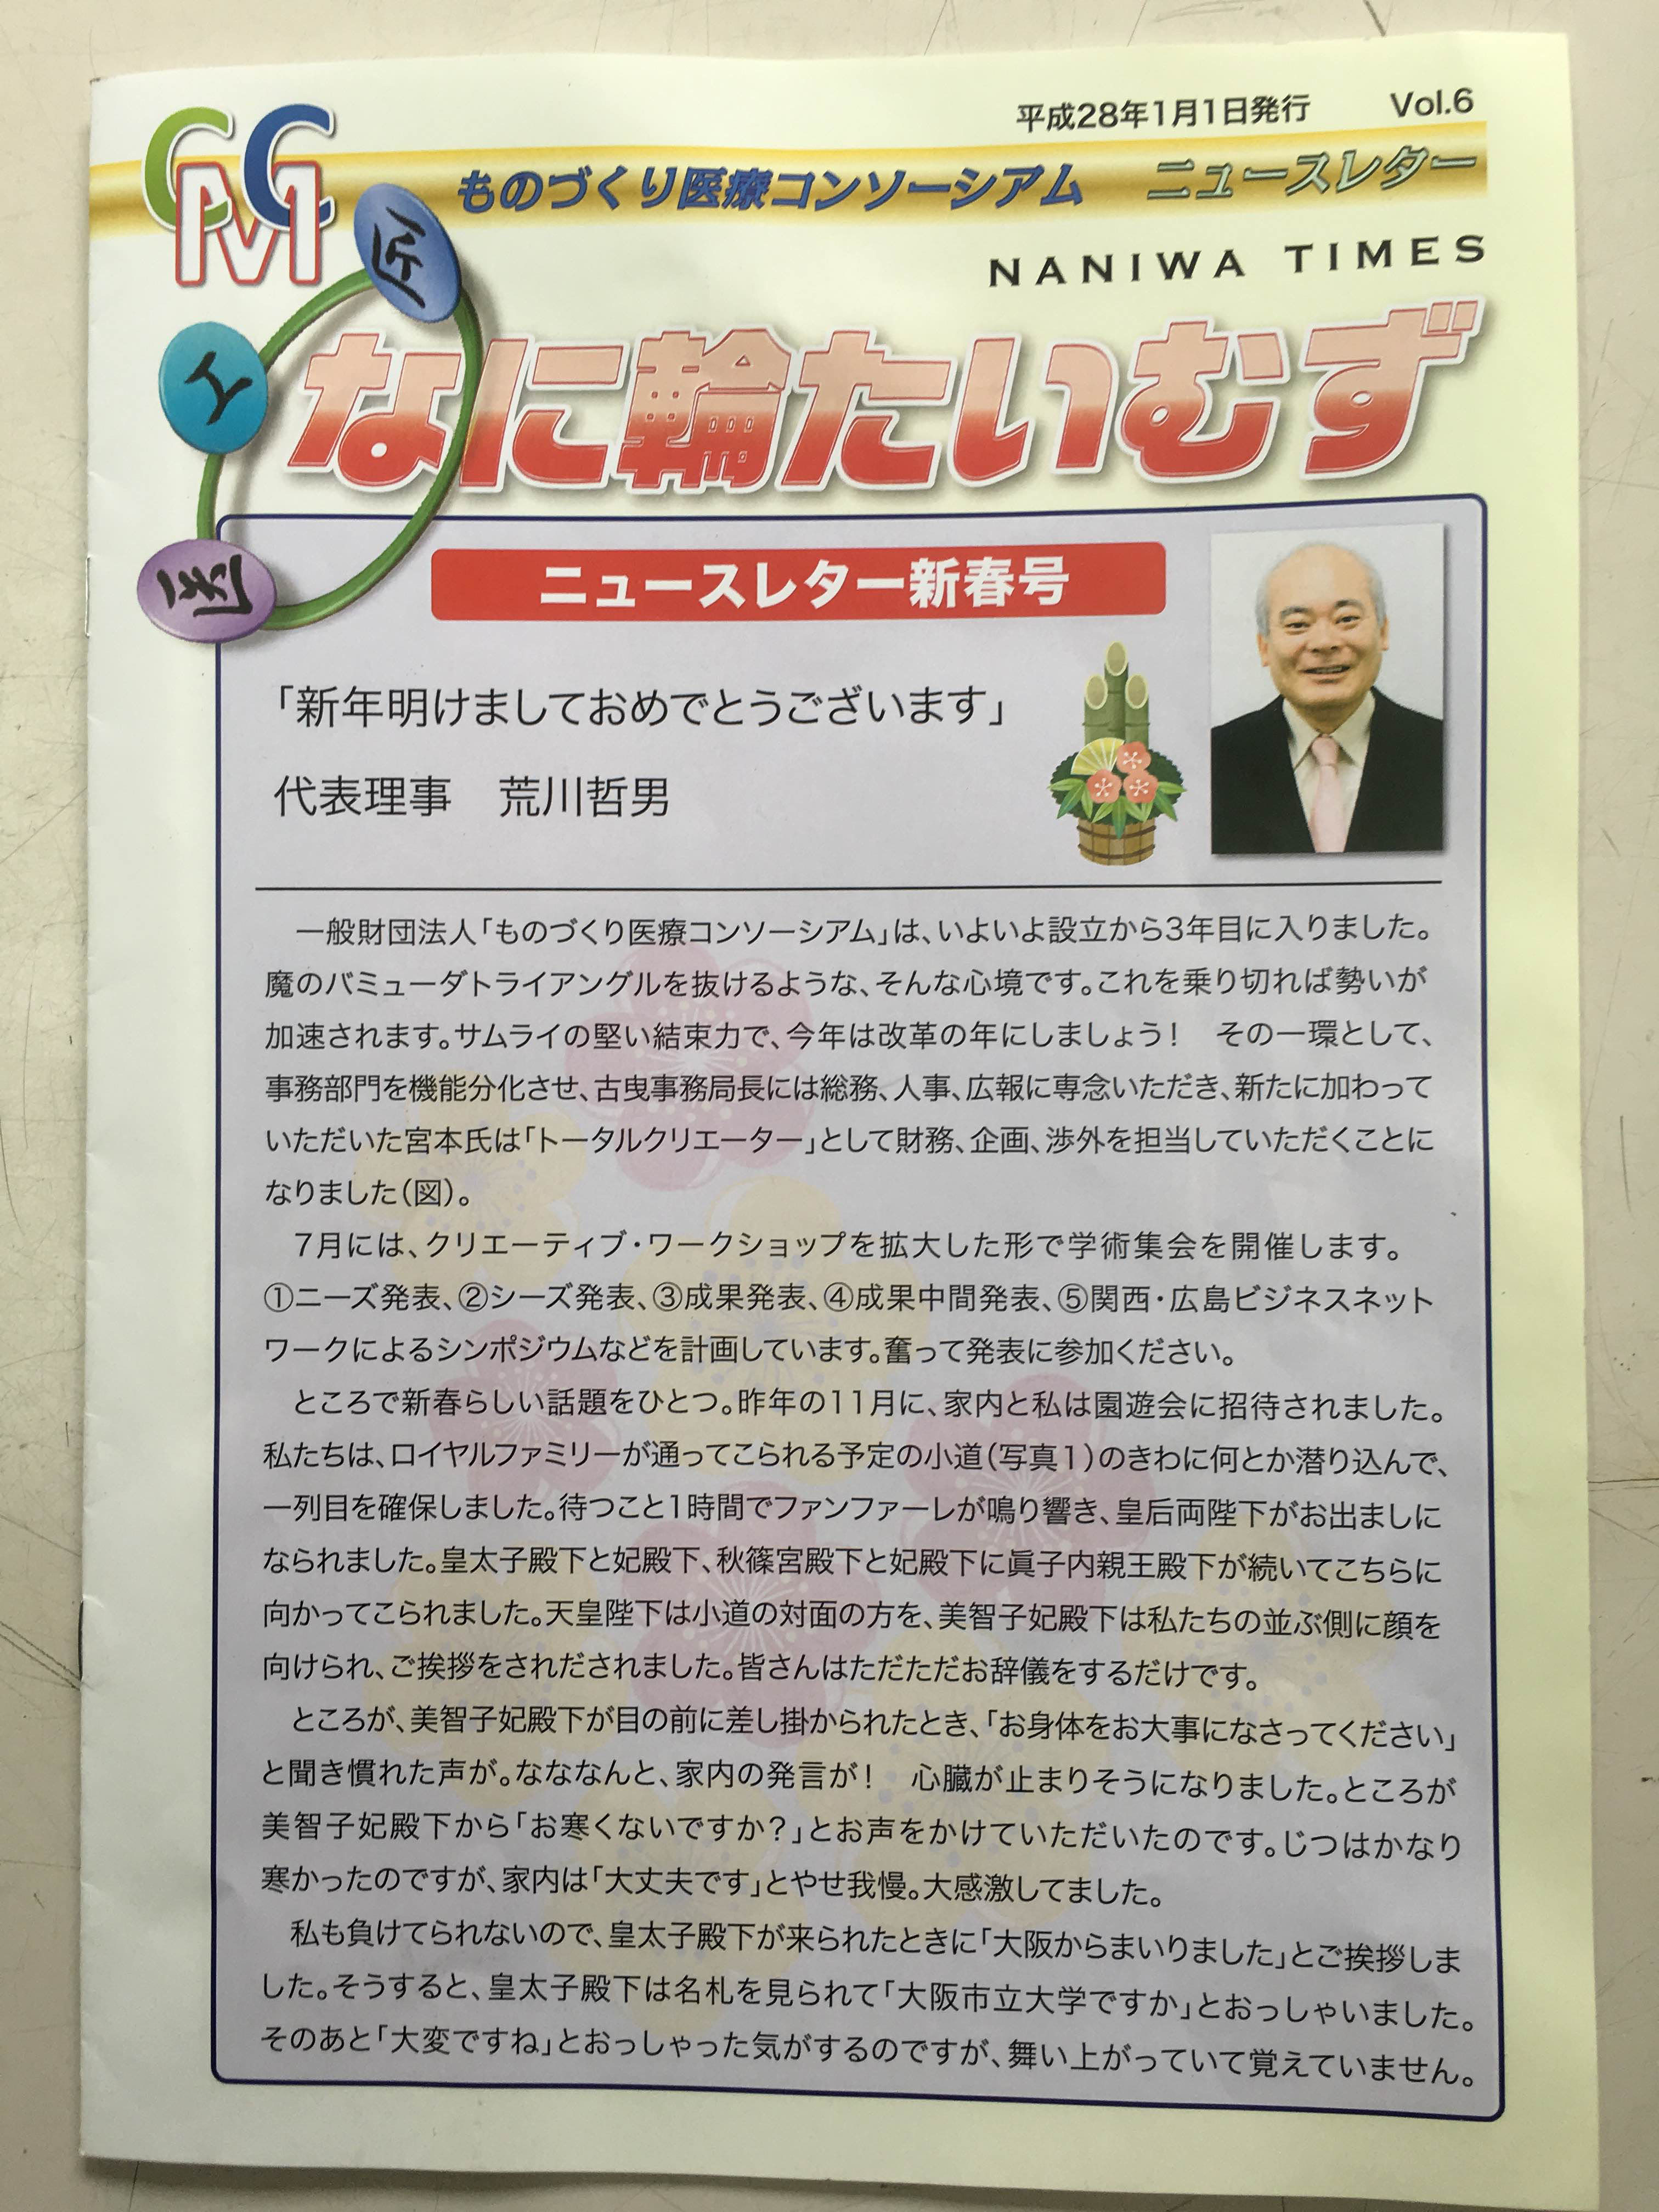 平成28年1月1日発行 Vol.6
CMC
ものづくり医療コンソーシアム ニュースレター
NANIWA TIMES
匠
工
医
なに輪たいむず
ニュースレター新春号
「新年明けましておめでとうございます」
代表理事 荒川哲男
一般財団法人「ものづくり医療コンソーシアム」は、いよいよ設立から3年目に入りました。
魔のバミューダトライアングルを抜けるような、そんな心境です。これを乗り切れば勢いが
加速されます。サムライの堅い結束力で、今年は改革の年にしましょう! その一環として、
事務部門を機能分化させ、古曳事務局長には総務、人事、広報に専念いただき、新たに加わって
いただいた宮本氏は「トータルクリエーター」として財務、企画、渉外を担当していただくことに
なりました(図)。
7月には、クリエーティブ・ワークショップを拡大した形で学術集会を開催します。
①ニーズ発表、②シーズ発表、③成果発表、④成果中間発表、⑤関西・広島ビジネスネット
ワークによるシンポジウムなどを計画しています。奮って発表に参加ください。
ところで新春らしい話題をひとつ。昨年の11月に、家内と私は園遊会に招待されました。
私たちは、ロイヤルファミリーが通ってこられる予定の小道(写真1)のきわに何とか潜り込んで、
一列目を確保しました。待つこと1時間でファンファーレが鳴り響き、皇后両陛下がお出ましに
なられました。皇太子殿下と妃殿下、秋篠宮殿下と妃殿下に眞子内親王殿下が続いてこちらに
向かってこられました。天皇陛下は小道の対面の方を、美智子妃殿下は私たちの並ぶ側に顔を
向けられ、ご挨拶をされだされました。皆さんはただただお辞儀をするだけです。
ところが、美智子妃殿下が目の前に差し掛かられたとき、「お身体をお大事になさってください」
と聞き慣れた声が。なななんと、家内の発言が! 心臓が止まりそうになりました。ところが
美智子妃殿下から「お寒くないですか?」とお声をかけていただいたのです。じつはかなり
寒かったのですが、家内は「大丈夫です」とやせ我慢。大感激してました。
私も負けてられないので、皇太子殿下が来られたときに「大阪からまいりました」とご挨拶しま
した。そうすると、皇太子殿下は名札を見られて「大阪市立大学ですか」とおっしゃいました。
そのあと「大変ですね」とおっしゃった気がするのですが、舞い上がっていて覚えていません。